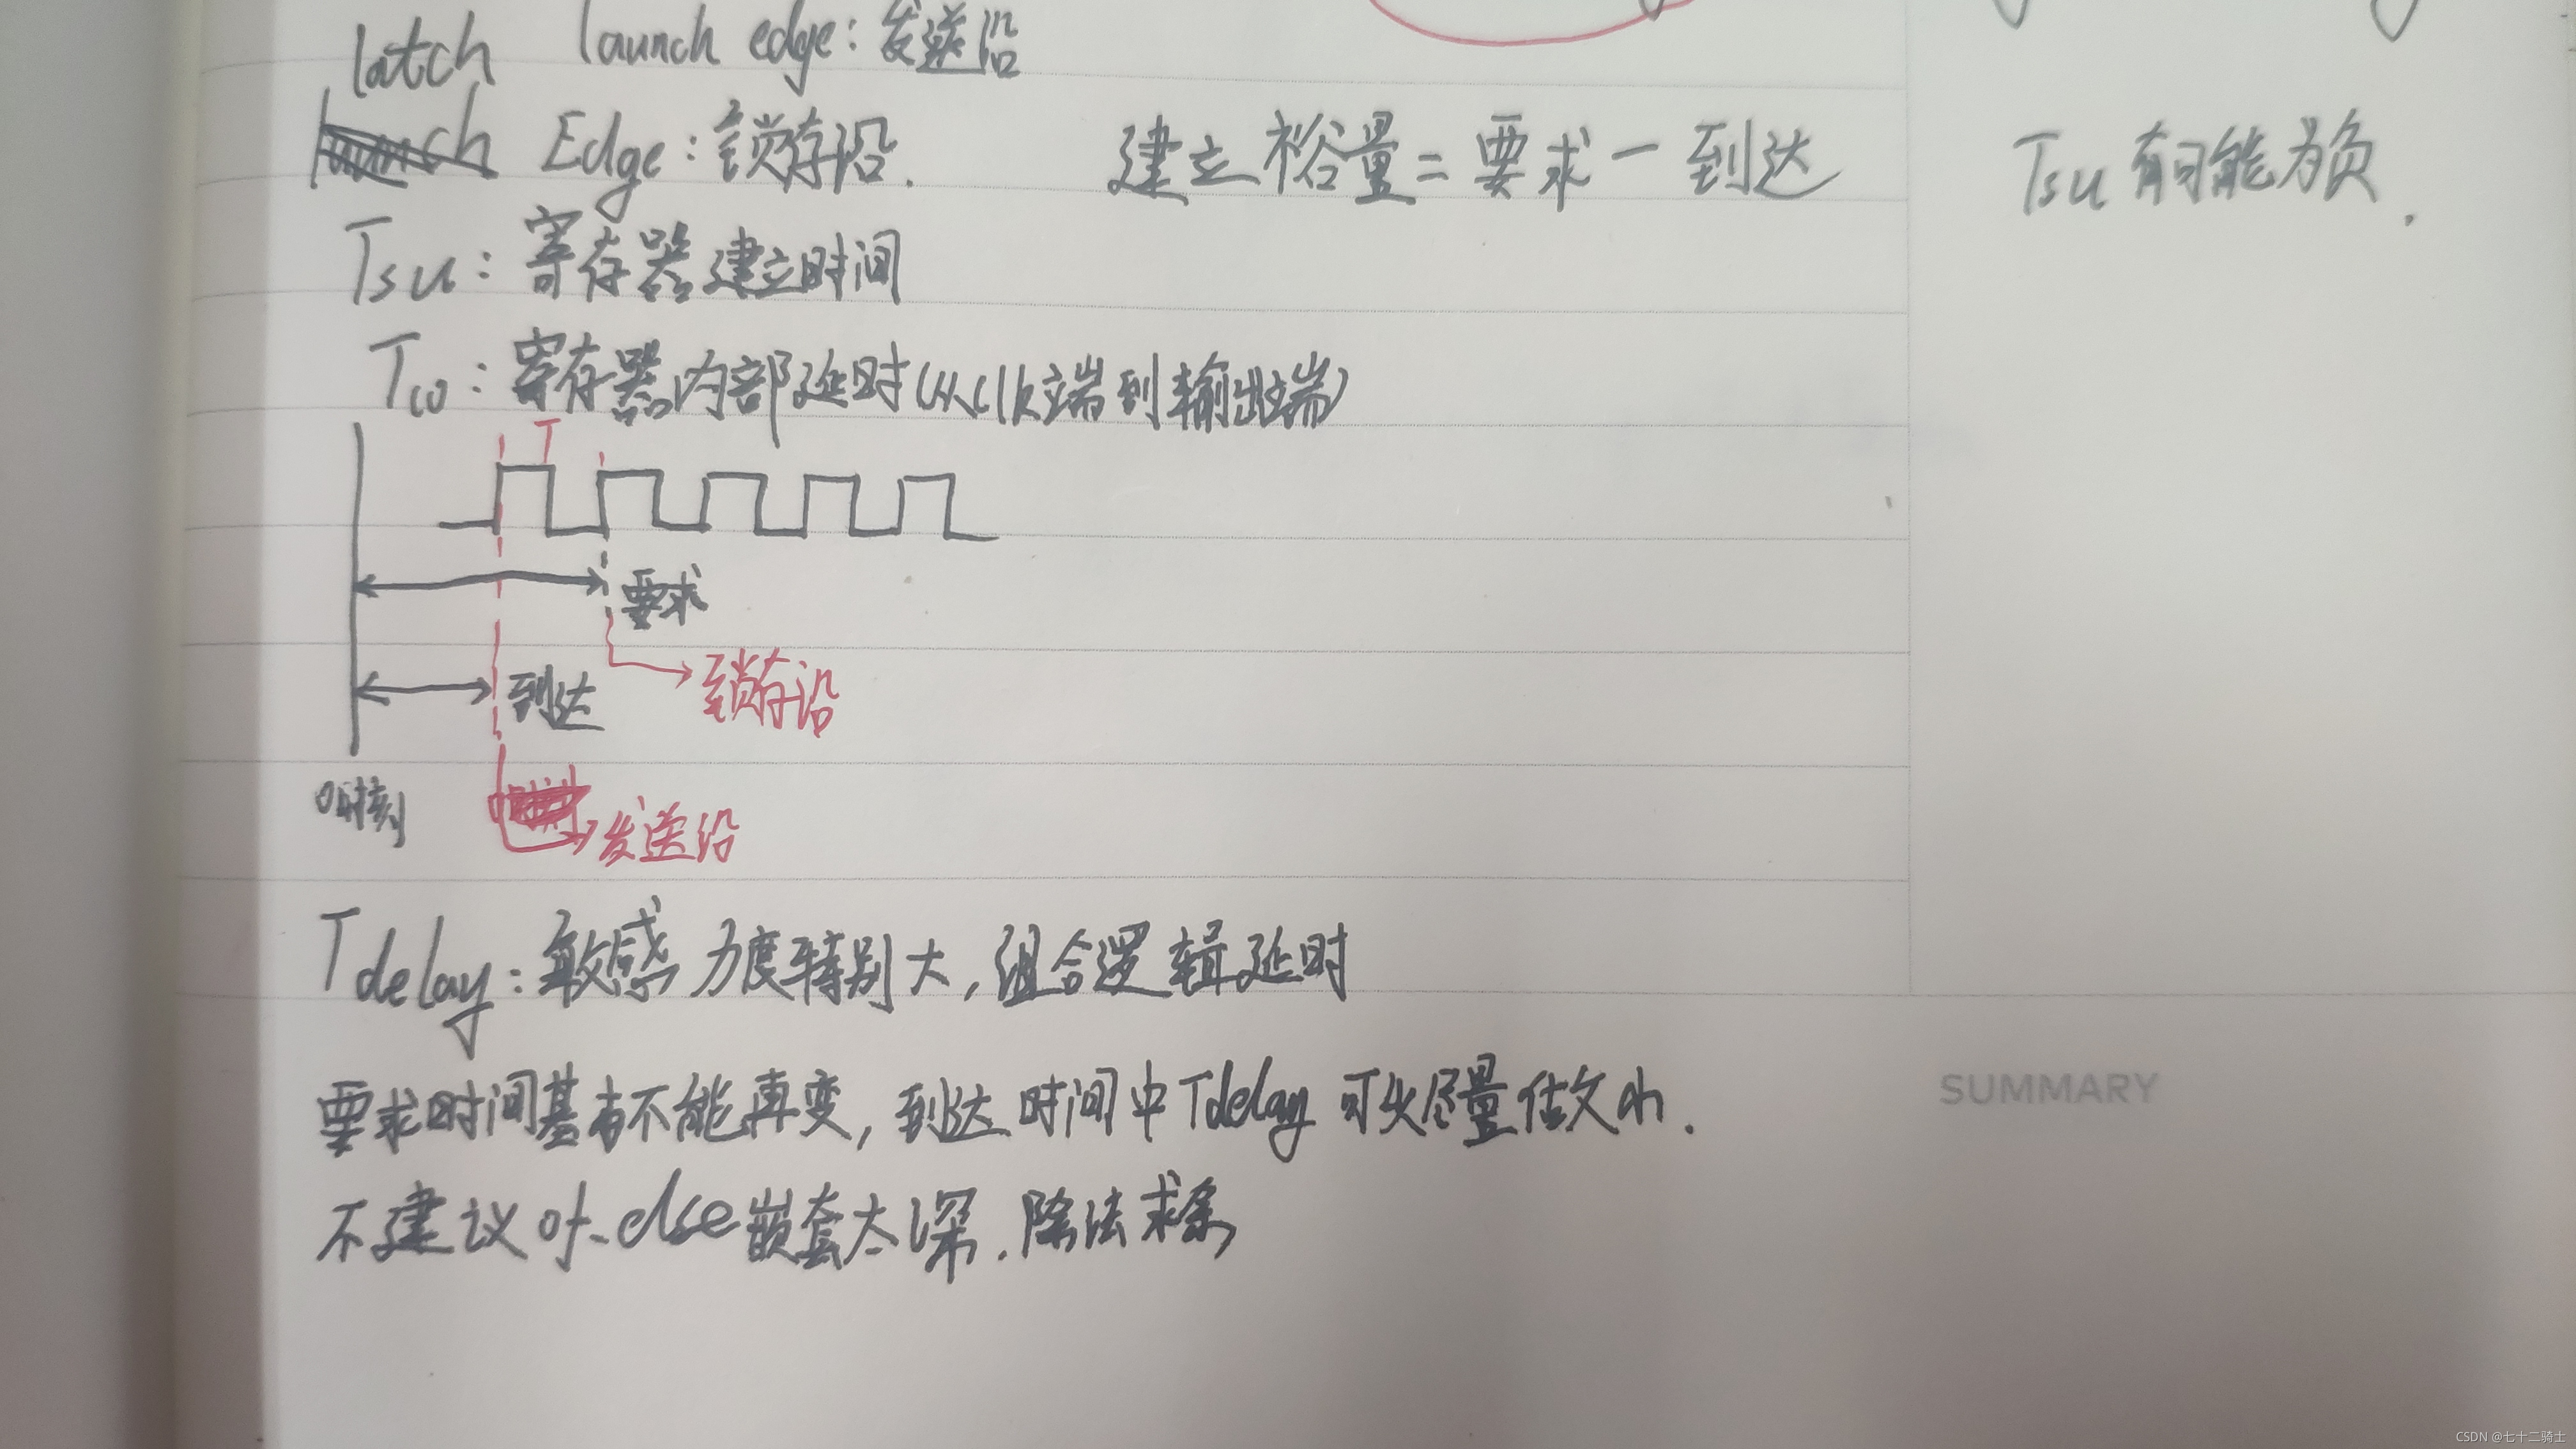 launch edge:发送沿
latch Edge:锁存沿.
建立裕量=要求-到达
Tsu有可能为负.
Tsu:寄存器建立时间
Tco:寄存器内部延时(从clk端到输出端)
T
要求
到达
锁存沿
0时刻
发送沿
Tdelay:敏感力度特别大,组合逻辑延时
要求时间基本不能再变,到达时间中Tdelay可以尽量做文章.
不建议if-else嵌套太深.除法求余
SUMMARY
CSDN @七十二骑士